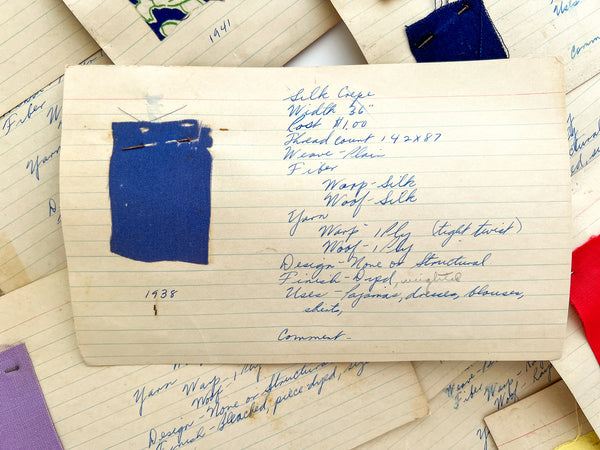 1941
Uses
Comm
Fiber
Wa
Yarn
Silk Crepe
Width 36"
Cost $1.00
Thread Count 142x87
Weave - Plain
Fiber
Warp - Silk
Woof - Silk
Yarn
Warp - 1 Ply (tight twist)
Woof - 1 Ply
Design - None or Structural
Finish - Dyed, weighted
Uses - Pajamas, dresses, blouses,
shirts,
Comment -
1938
Yarn Warp - 1 Ply
Woof -
Design - None or Structura
Finish - Bleached, piece dyed,
Weave -
Fiber
Warp -
Woof -